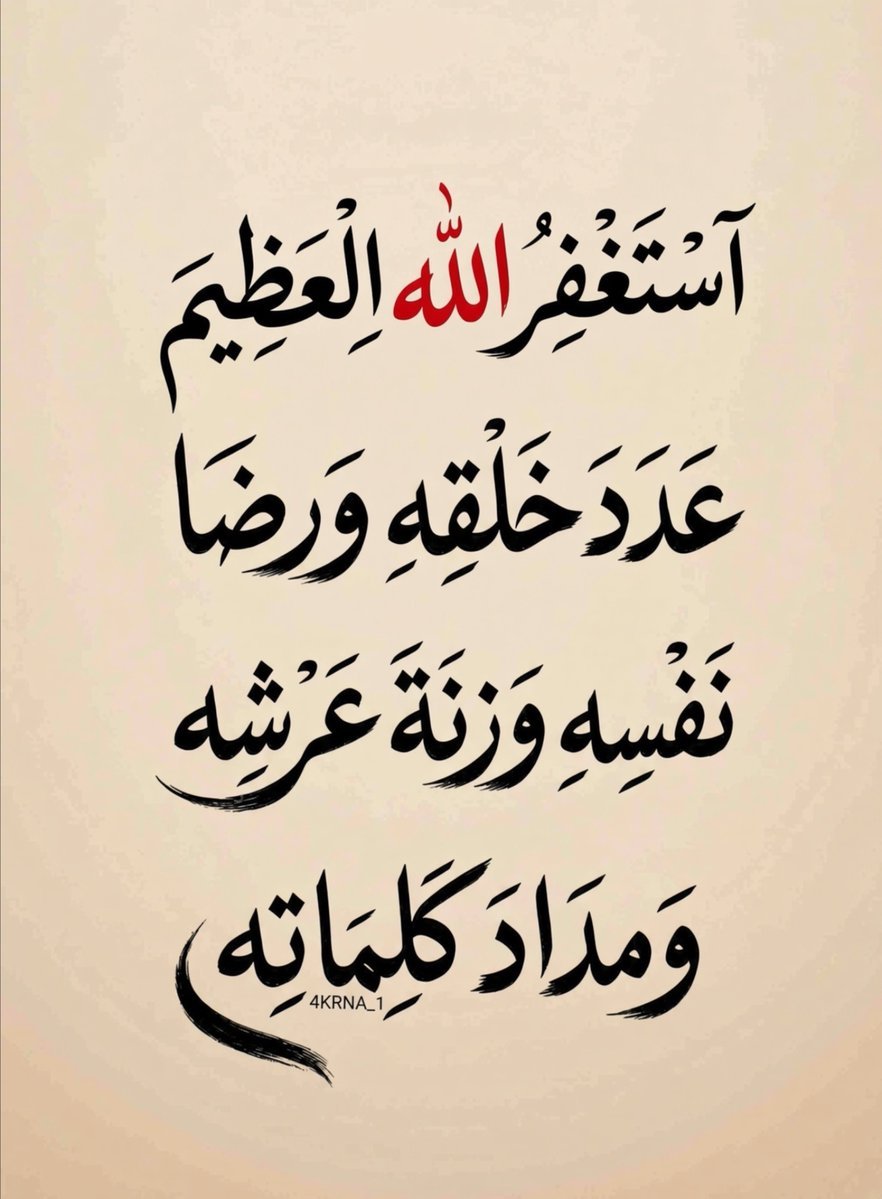 آسْتَغْفِرُ اللّٰه اِلْعَظِيمَ
عَدَدَ خَلْقِهِ وَرضَا
نَفْسِهِ وَزنَةَ عَرْشِه
وَمدَادَ كَلِمَاتِه
4KRNA_1